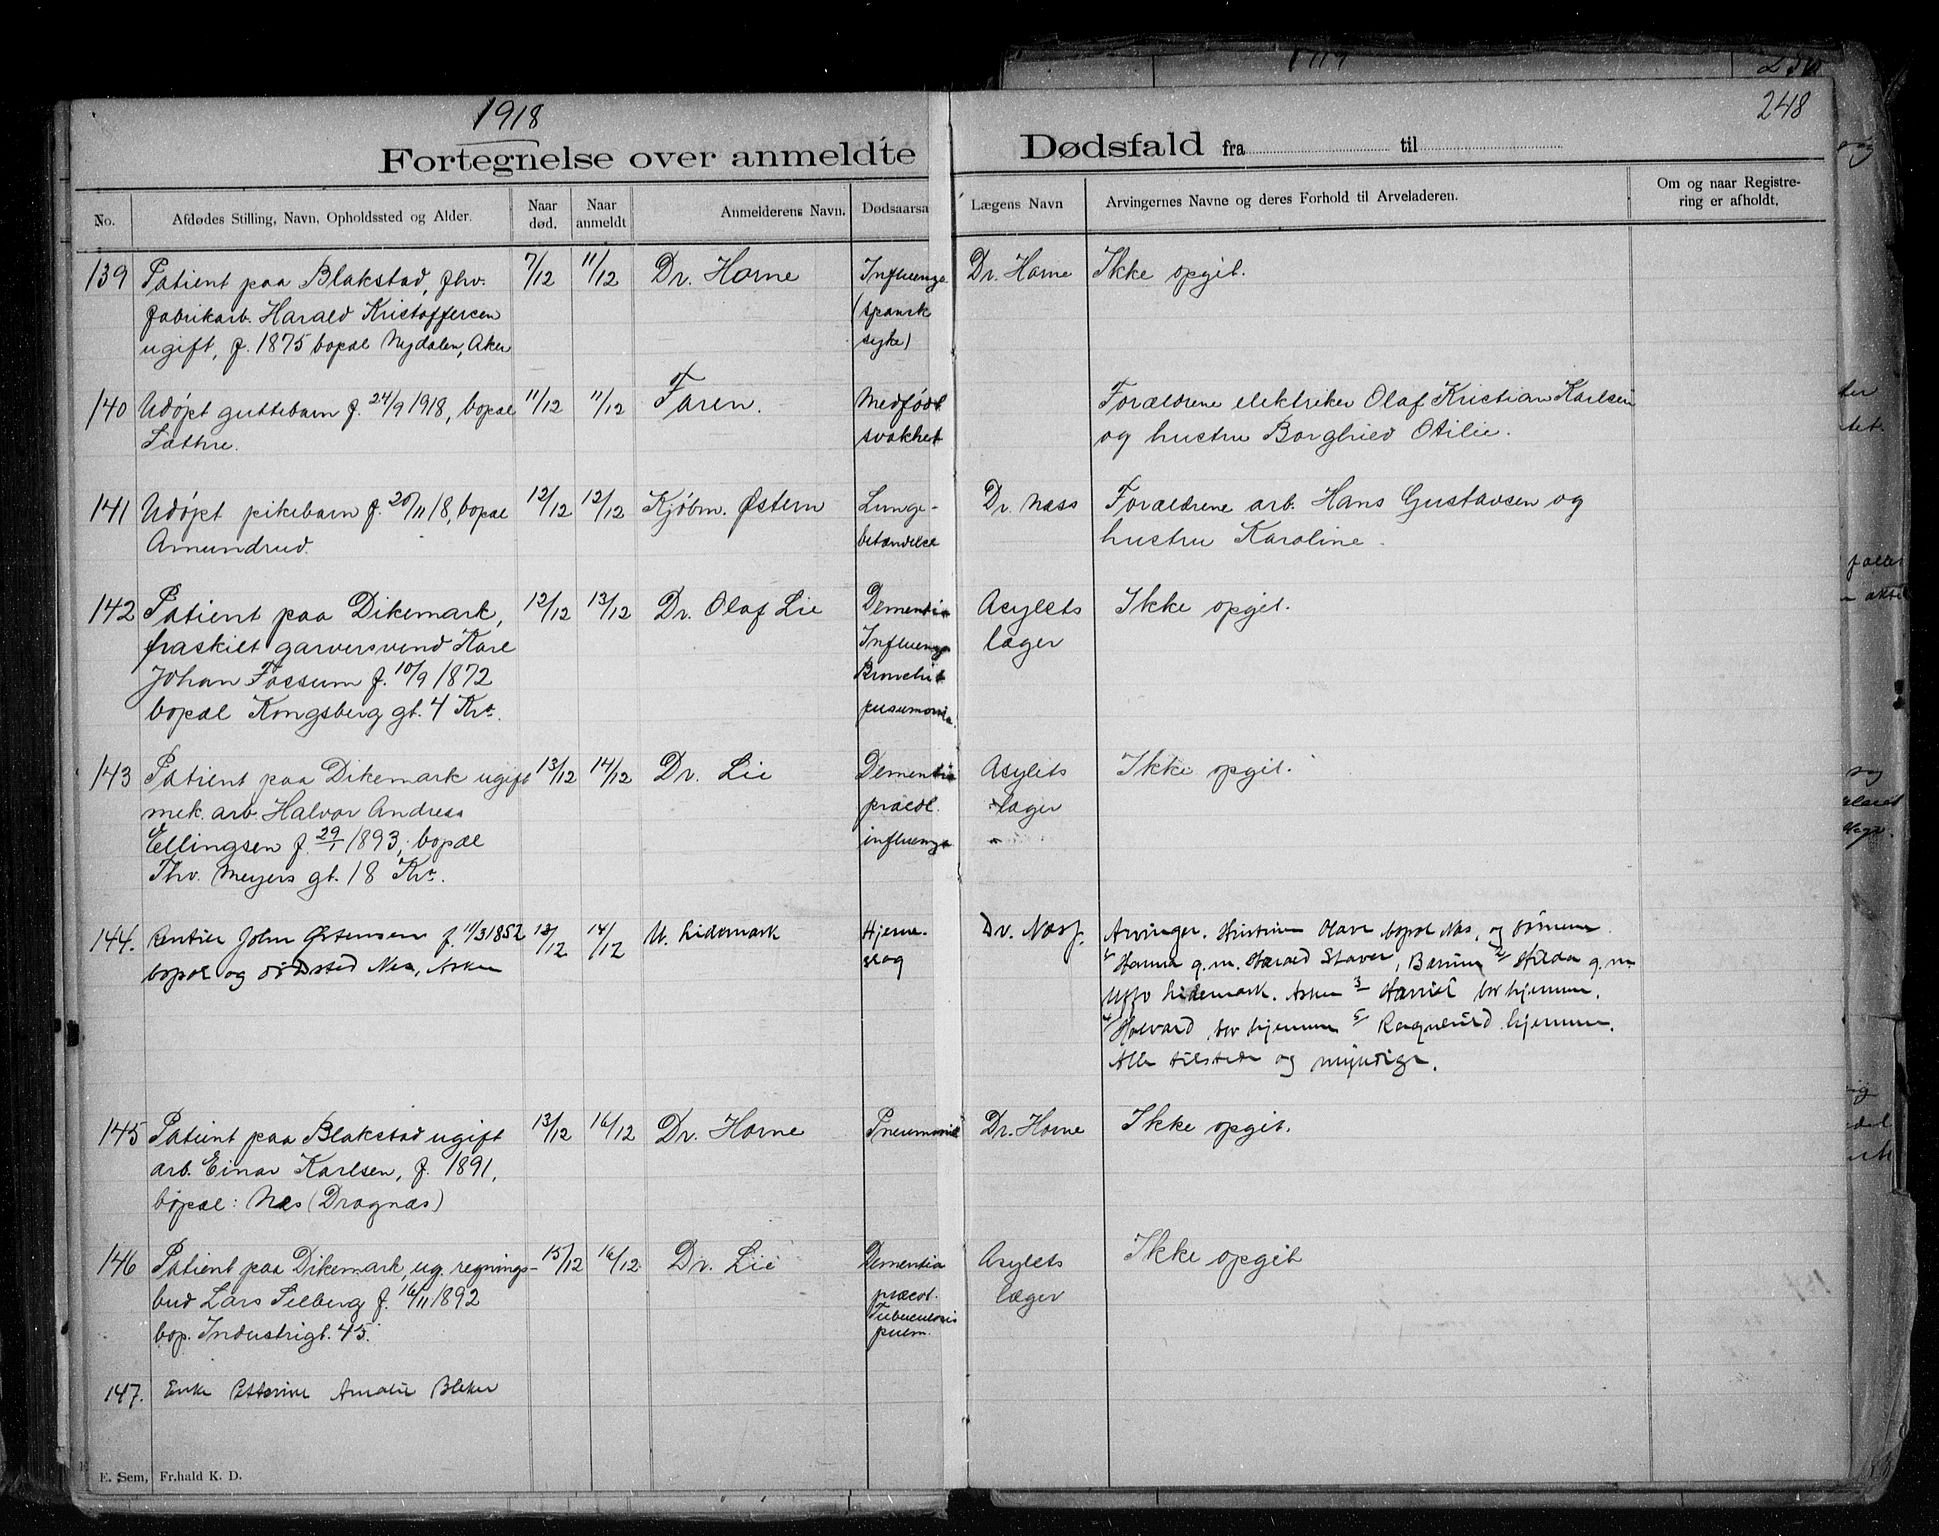 1918
248
Fortegnelse over anmeldte Dødsfald fra til
No.
Afdødes Stilling, Navn, Opholdssted og Alder.
Naar død.
Naar anmeldt
Anmelderens Navn.
Dødsaarsa
Lægens Navn
Arvingernes Navne og deres Forhold til Arveladeren.
Om og naar Registre-
ring er afholdt.
139 Patient paa Blakstad, fhv. 7/12 11/12 Dr. Horne Influenza Dr. Horne Ikke opgit.
fabrikarb. Harald Kristoffersen (spansk
ugift, f. 1875 bopæl Nydalen, Aker syke)
140 Udøpt guttebarn f. 24/9 1918, bopæl 11/12 11/12 Faren. Medfødt Forældrene elektriker Olaf Kristian Karlsen
Sætre. svakhet og hustru Borghild Otilie.
141 Udøpt pikebarn f. 20/11 18, bopæl 12/12 12/12 Kjøbm. Østern Lunge- Dr. Næss Forældrene arb. Hans Gustavsen og
Amundrud. betændelse hustru Karoline.
142 Patient paa Dikemark, 12/12 13/12 Dr. Olaf Lie Dementia Asylets Ikke opgit.
fraskilt garversvend Karl Influenza læger
Johan Fossum f. 10/9 1872 Bronchit
bopæl Kongsberg gt. 4 Kra. pneumonia.
143 Patient paa Dikemark ugift 13/12 14/12 Dr. Lie Dementia Asylets Ikke opgit.
mek. arb. Halvor Andreas præcol. læger
Ellingsen f. 29/1 1893, bopæl influenza
Thv. Meyers gt. 18 Kra.
144. Rentier John Østensen f. 11/3 1852 13/12 14/12 U. Lidemark Hjerne- Dr. Næss. Arvinger. Hustruen Olava bopæl Næs, og børnene
bopæl og dødsted Næs, Asker slag 1/ Hanna g.m. Harald Staver, Bærum 2/ Hilda g.m.
Uffo Lidemark. Asker 3 Daniel bor hjemme.
4/ Halvard bor hjemme 5/ Ragnhild hjemme.
Alle tilstede og myndige.
145 Patient paa Blakstad ugift 13/12 16/12 Dr. Horne Pneumonie Dr. Horne Ikke opgit.
arb. Einar Karlsen, f. 1891,
bopæl: Næs (Dragnæs)
146 Patient paa Dikemark, ug. regnings- 15/12 16/12 Dr. Lie Dementia Asylets Ikke opgit
bud Lars Selberg f. 16/11 1892 præcol. læger
bop. Industrigt. 45. Tuberculosis
pulm.
147. Enke Petterine Amalie Bleker
E. Sem, Fr.hald K. D.